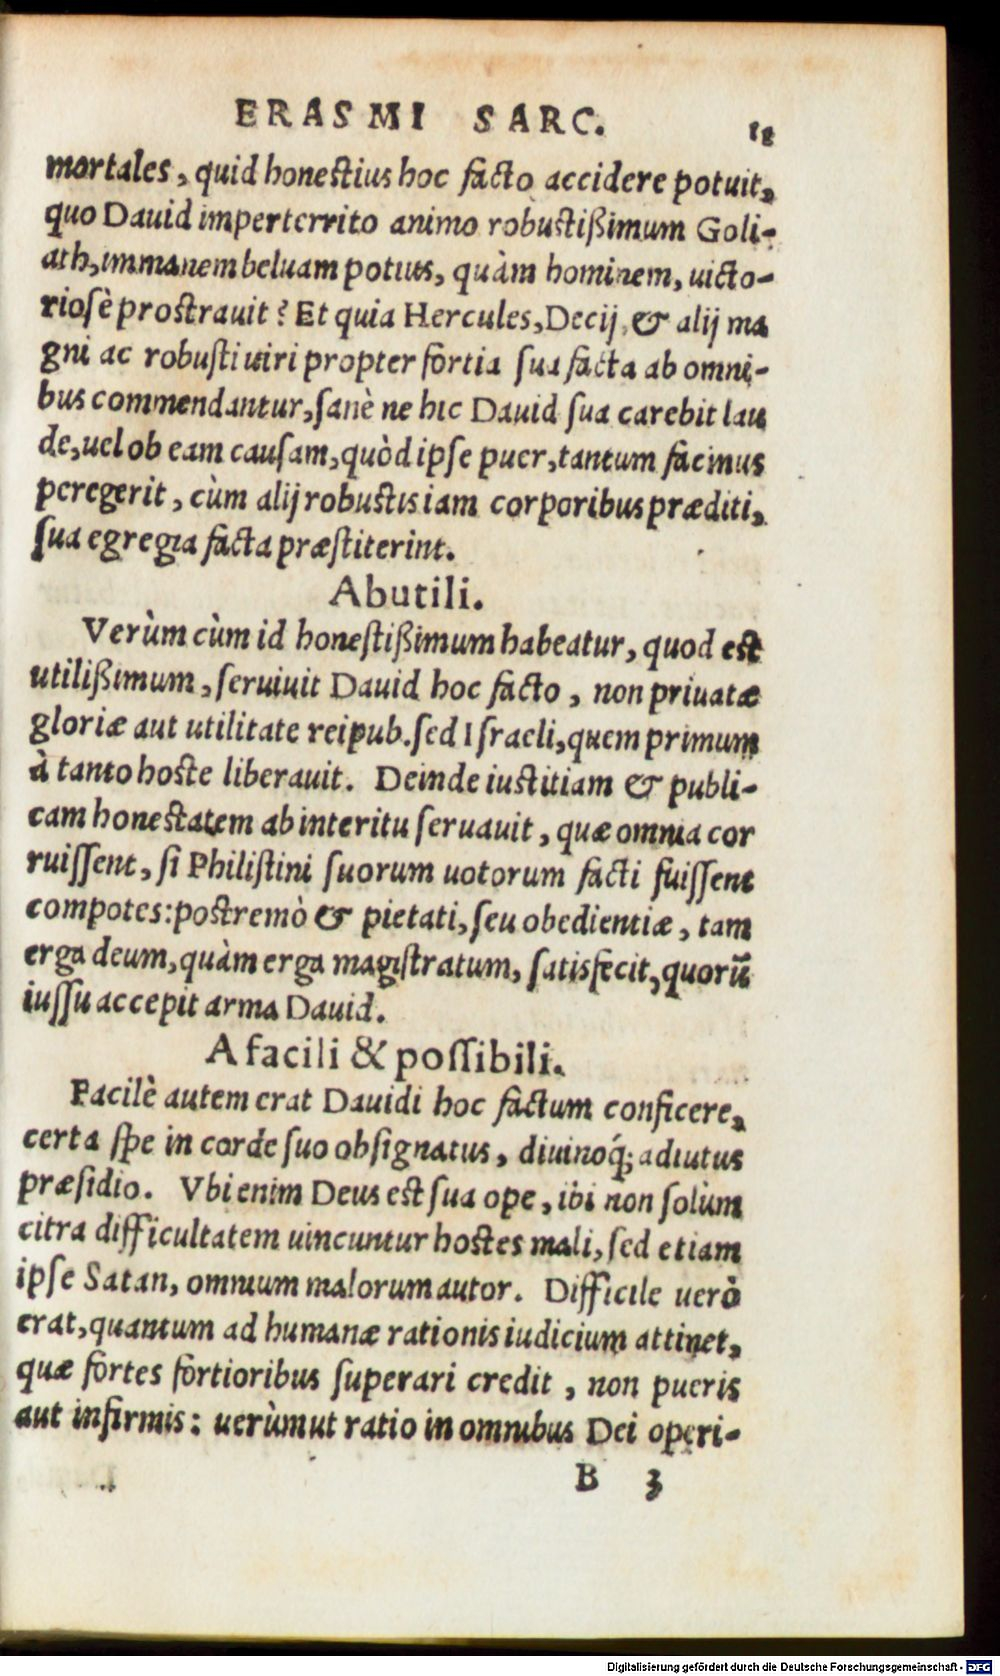 ERASMI SARC. 18
mortales, quid honestius hoc facto accidere potuit,
quo Dauid imperterrito animo robustißimum Goli-
ath, immanem beluam potius, quàm hominem, uicto-
riosè prostrauit? Et quia Hercules, Decij, & alij ma
gni ac robusti uiri propter fortia sua facta ab omni-
bus commendantur, sanè ne hic Dauid sua carebit lau
de, uel ob eam causam, quòd ipse puer, tantum facinus
peregerit, cùm alij robustis iam corporibus præditi,
sua egregia facta præstiterint.
Ab utili.
Verùm cùm id honestißimum habeatur, quod est
utilißimum, seruiuit Dauid hoc facto, non priuatæ
gloriæ aut utilitate reipub. sed Israeli, quem primum
à tanto hoste liberauit. Deinde iustitiam & publi-
cam honestatem ab interitu seruauit, quæ omnia cor
ruissent, si Philistini suorum uotorum facti fuissent
compotes: postremò & pietati, seu obedientiæ, tam
erga deum, quàm erga magistratum, satisfecit, quorũ
iussu accepit arma Dauid.
A facili & possibili.
Facilè autem erat Dauidi hoc factum conficere,
certa spe in corde suo obsignatus, diuinoq́; adiutus
præsidio. Vbi enim Deus est sua ope, ibi non solùm
citra difficultatem uincuntur hostes mali, sed etiam
ipse Satan, omnium malorum autor. Difficile uerò
erat, quantum ad humanæ rationis iudicium attinet,
quæ fortes fortioribus superari credit, non pueris
aut infirmis: uerùm ut ratio in omnibus Dei operi-
B 3
Digitalisierung gefördert durch die Deutsche Forschungsgemeinschaft - DFG